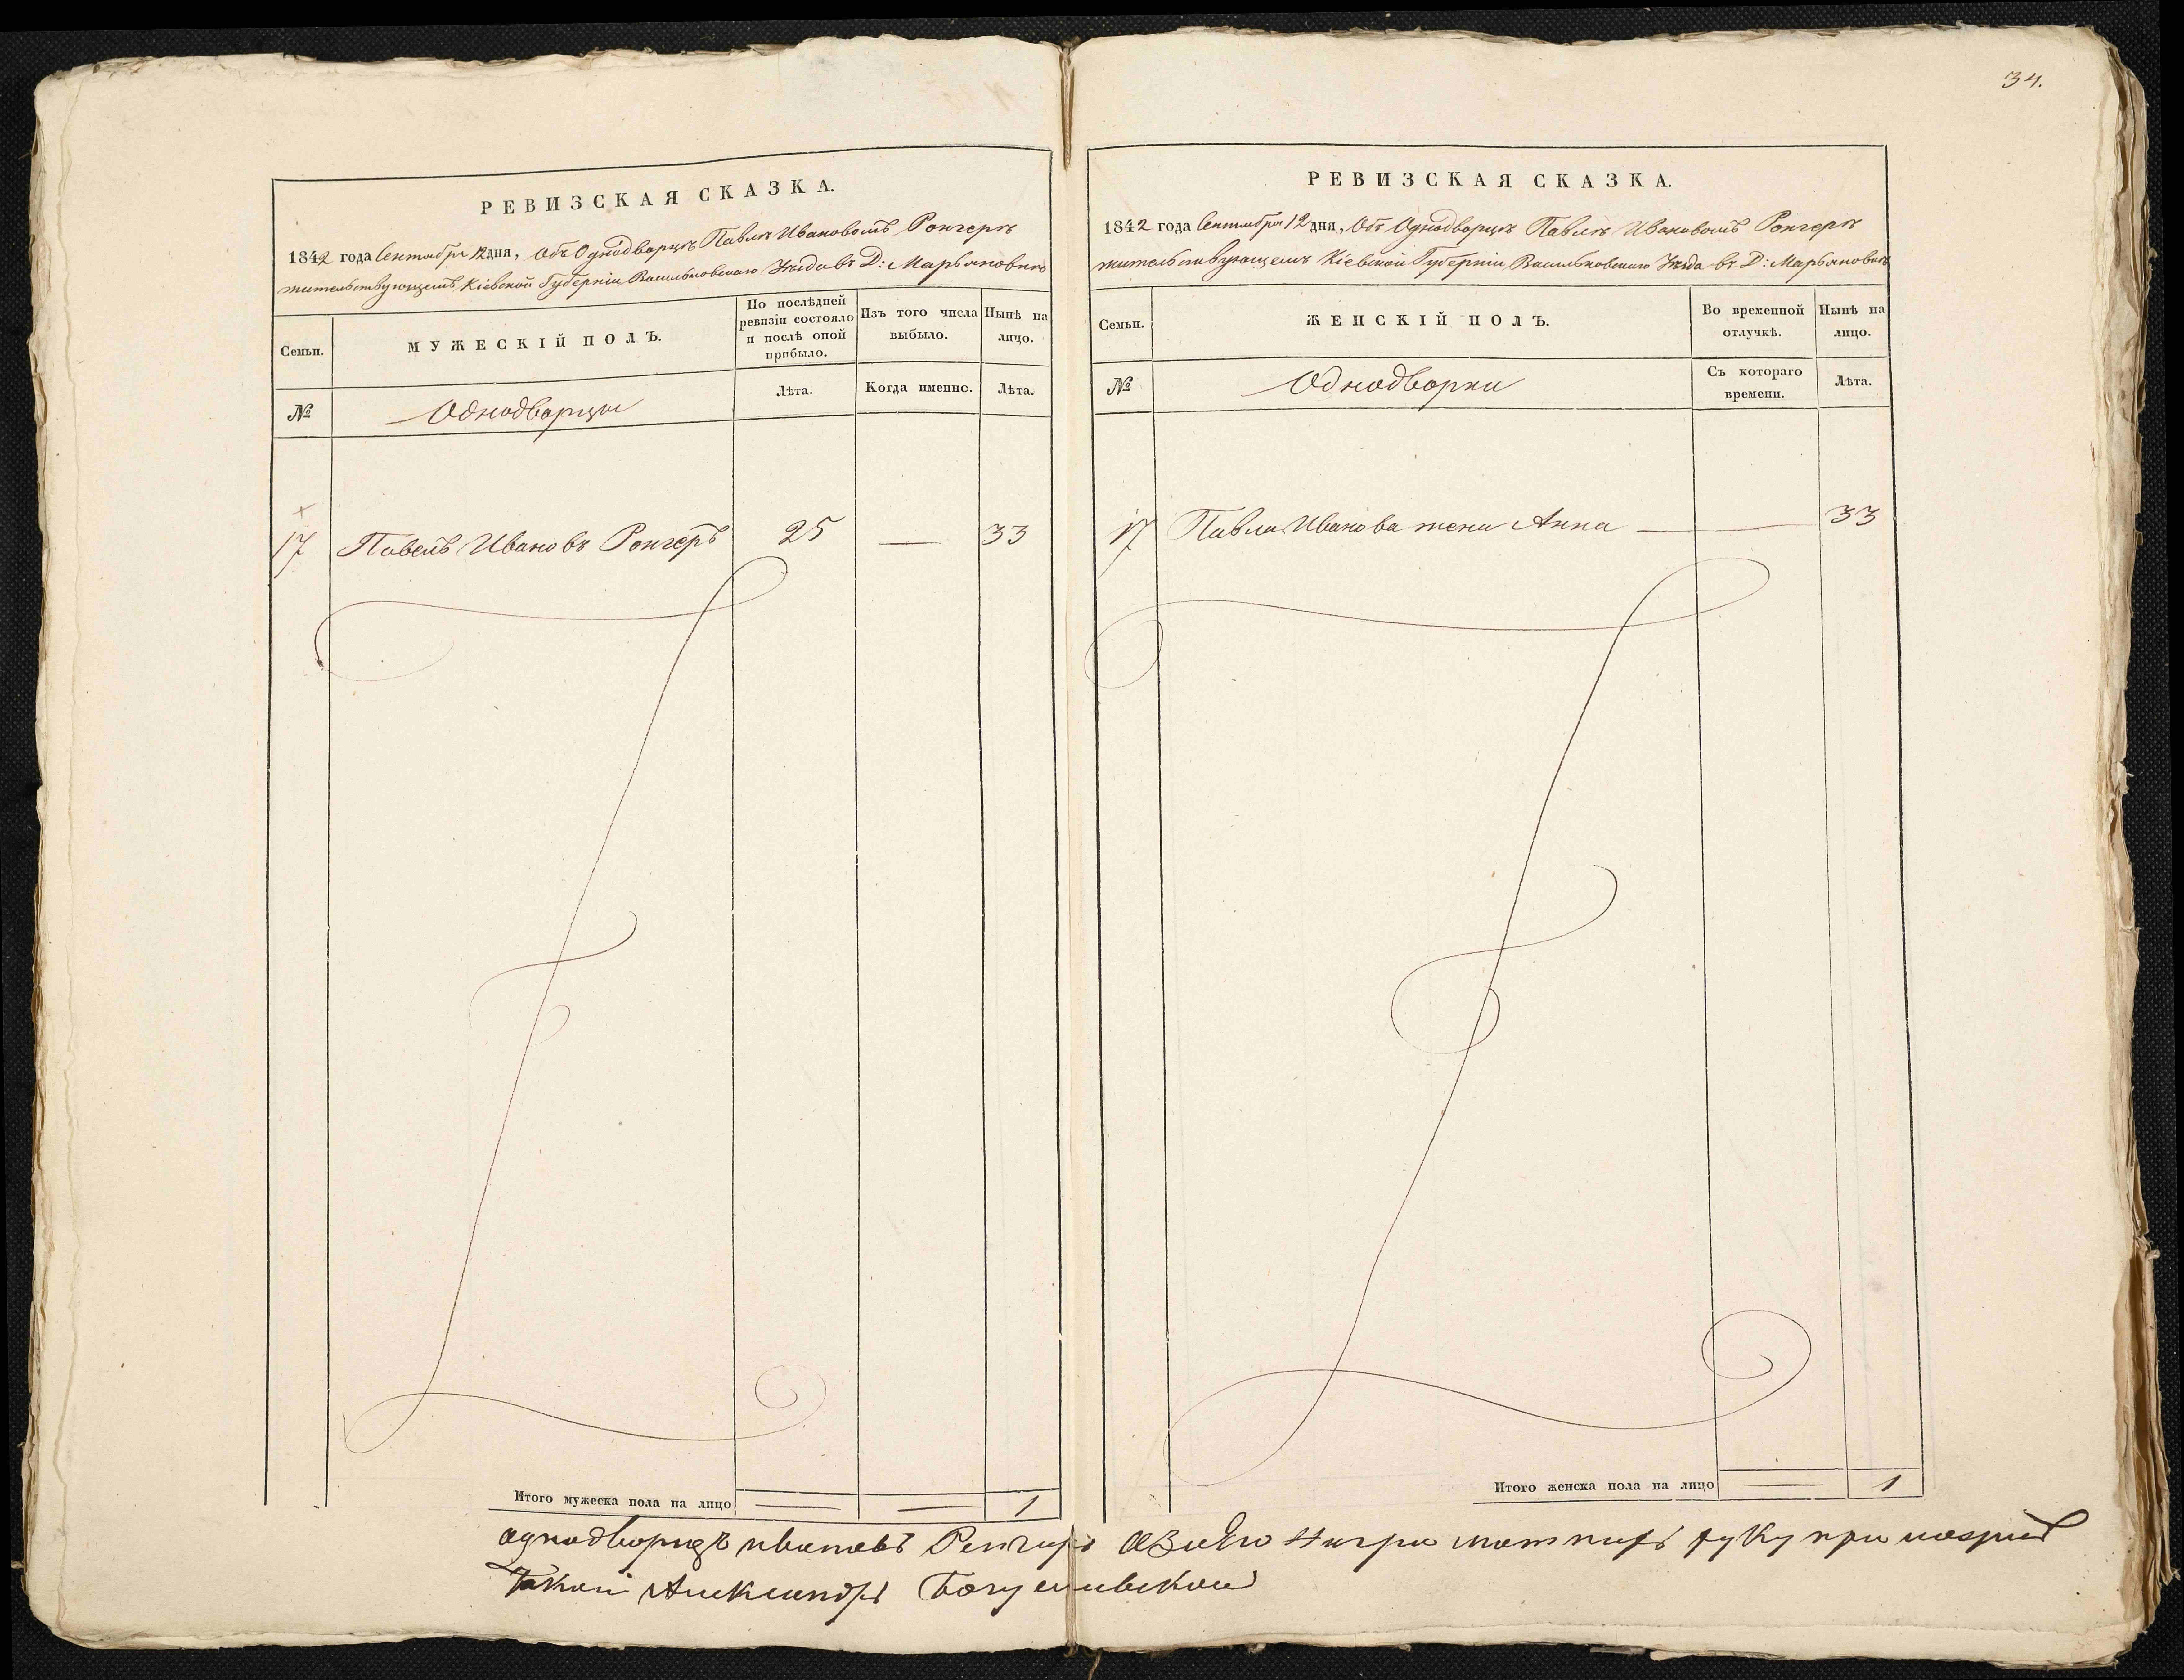 34.
РЕВИЗСКАЯ СКАЗКА.
1842 года Сентября 12 дня, Объ Однодворцѣ Павлѣ Ивановомъ Ронгерѣ
жительствующемъ Кіевской Губерніи Васильковскаго Уѣзда въ Д: Марьяновкѣ
Семьи.
МУЖЕСКІЙ ПОЛЪ.
По послѣдней ревизіи состояло и послѣ оной прибыло.
Изъ того числа выбыло.
Нынѣ на лицо.
№
Однодворцы
Лѣта.
Когда именно.
Лѣта.
17 Павелъ Ивановъ Ронгеръ 25 — 33
Итого мужеска пола на лицо 1
РЕВИЗСКАЯ СКАЗКА.
1842 года Сентября 12 дня, Объ Однодворцѣ Павлѣ Ивановомъ Ронгерѣ
жительствующемъ Кіевской Губерніи Васильковскаго Уѣзда въ Д: Марьяновкѣ
Семьи.
ЖЕНСКІЙ ПОЛЪ.
Во временной отлучкѣ.
Нынѣ на лицо.
№
Однодворки
Съ котораго времени.
Лѣта.
17 Павла Иванова жена Анна — — 33
Итого женска пола на лицо 1
однодворидъ ивановъ руку при
Александръ